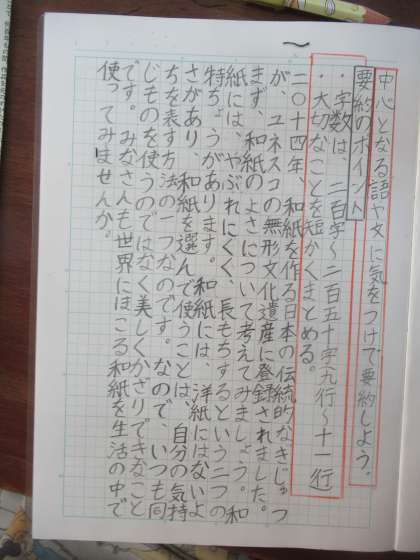 中心となる語や文に気をつけて要約しよう。
要約のポイント
・字数は、二百字～二百五十字(九行～十一行)
・大切なことを短かくまとめる。
二〇一四年、和紙を作る日本の伝統的なぎじゅつ
が、ユネスコの無形文化遺産に登録されました。
まず、和紙のよさについて考えてみましょう。和
紙には、やぶれにくく、長もちするという二つの
特ちょうがあります。和紙には、洋紙にはないよ
さがあり、和紙を選んで使うことは、自分の気持
ちを表す方法の一つなのです。なので、いつも同
じものを使うのではなく美しくかざりできなこと
です。みなさんも世界にほこる和紙を生活の中で
使ってみませんか。